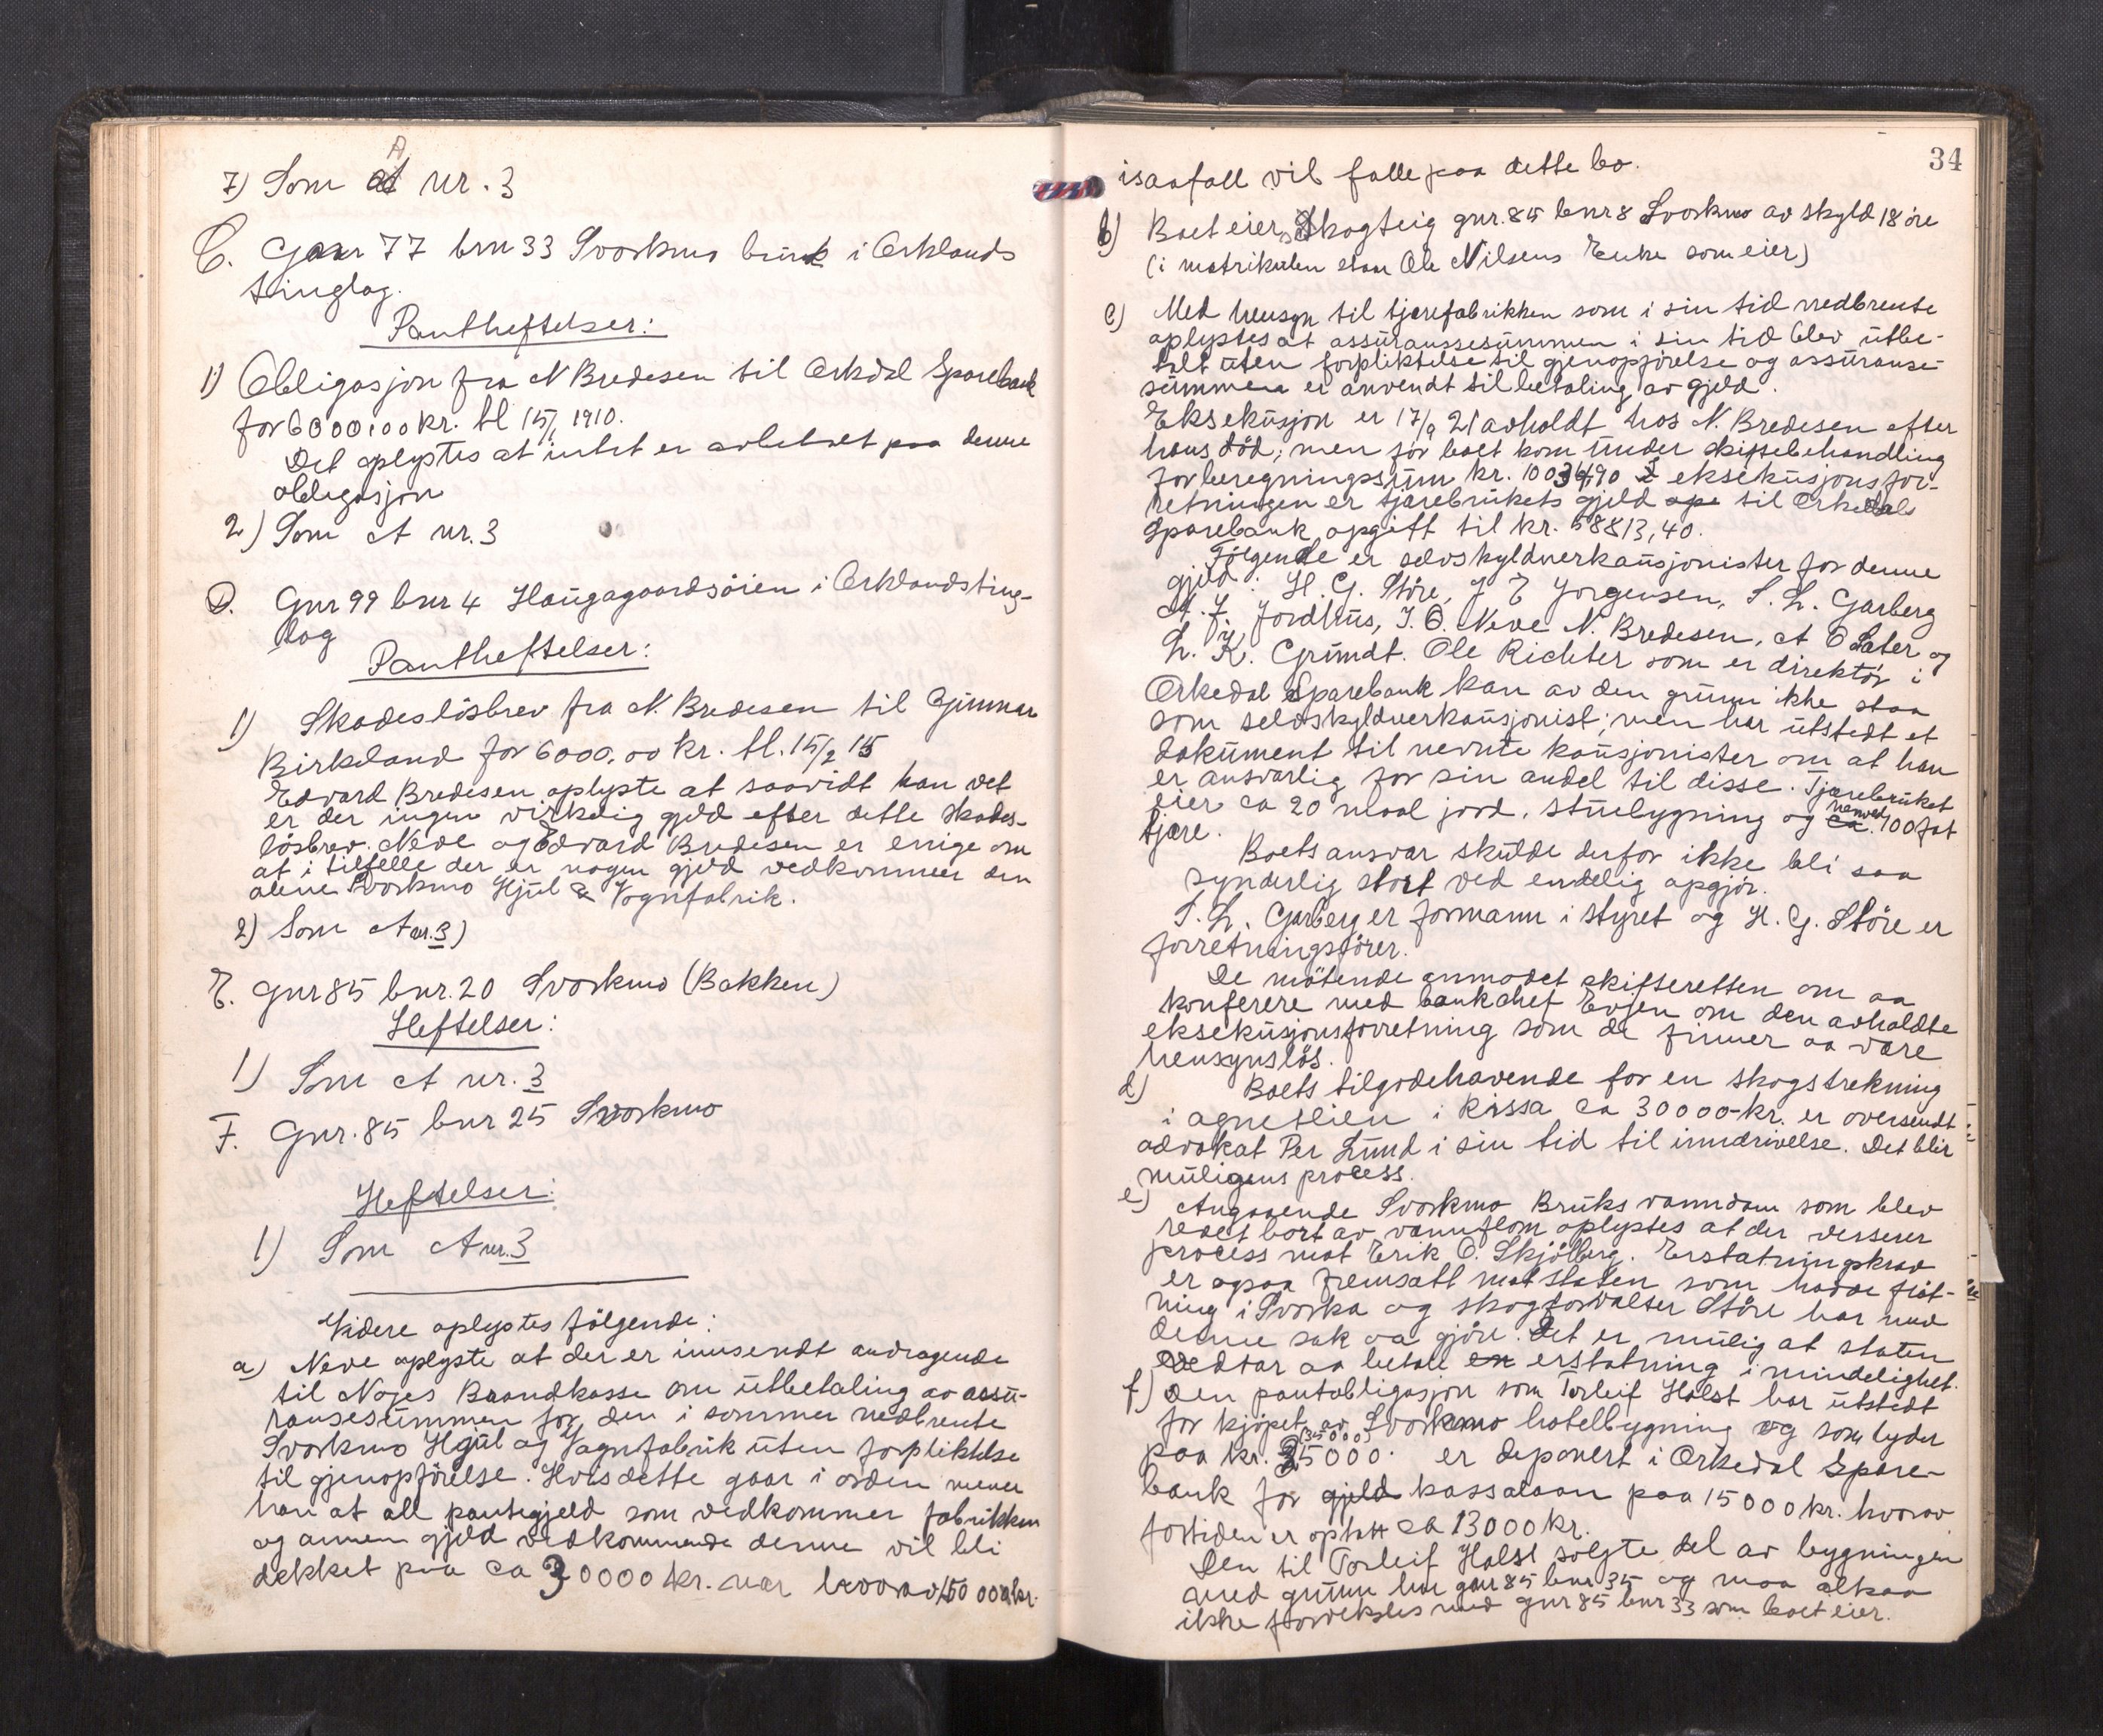 7) Som A nr. 3
C. Gnr 77 bnr 33 Svorkmo bruk i Orklands
tinglag.
Pantheftelser:
1) Obligasjon fra N Bredesen til Orkdal Sparebank
for 6000,00 kr. tl 15/ 1910.
Det oplystes at intet er avbetalt paa denne
obligasjon
2) Som A nr. 3
D. Gnr 99 bnr 4 Haugagaardsöien i Orklandsting-
lag
Pantheftelser:
1) Skadeslösbrev fra N. Bredesen til Gunnar
Birkeland for 6000,00 kr. tl. 15/2 15
Edvard Bredesen oplyste at saavidt han vet
er der ingen virkelig gjeld efter dette skades-
lösbrev. Neve og Edvard Bredesen er enige om
at i tilfelle der er nogen gjeld vedkommer den
alene Svorkmo Hjul & Vognfabrik.
2) Som A nr. 3)
E. Gnr 85 bnr. 20 Svorkmo (Bakken)
Heftelser:
1) Som A nr. 3
F. Gnr. 85 bnr 25 Svorkmo
Heftelser:
1) Som A nr. 3
Videre oplystes fölgende:
a) Neve oplyste at der er innsendt andragende
til Noges Brandkasse om utbetaling av assu-
ransesummen for den i sommer nedbrente
Svorkmo Hjul og Vagnfabrik uten forpliktelse
til gjenopförelse. Hvis dette gaar i orden mener
han at all pantegjeld som vedkommer fabrikken
og annen gjeld vedkommende denne vil bli
dekket paa ca 30000 kr. nær hvorav 15000 kr.
34
isaafall vil falle paa dette bo.
b) Boet eier Skogteig gnr. 85 bnr 8 Svorkmo av skyld 18 öre
(i matrikulen staar Ole Nilsens Enke som eier)
c) Med hensyn til tjærefabrikken som i sin tid nedbrente
oplystes at assuransesummen i sin tid blev utbe-
talt uten forpliktelse til gjenopförelse og assuranse-
summen er anvendt til betaling av gjeld.
Eksekusjon er 17/9 21 avholdt hos N. Bredesen efter
hans död; men för boet kom under skiftebehandling
for beregningssum kr. 10034,90 I eksekusjonsfor-
retningen er tjærebrukets gjeld til Orkedals
Sparebank opgitt til kr. 58813,40.
Fölgende er selvskyldnerkausjonister for denne
gjeld: H. G. Störe, J E Jorgensen, S. L. Garberg
A. J. Jordhus, I. O. Neve N. Bredesen, A O Sæter og
L. K. Grundt. Ole Richter som er direktör i
Orkedal Sparebank kan av den grunn ikke staa
som selvskyldnerkausjonist; men har utstedt et
dokument til nevnte kausjonister om at han
er ansvarlig for sin andel til disse. Tjærebruket
eier ca 20 maal jord, stuebygning og henved 100 fat
tjære.
Boets ansvar skulde derfor ikke bli saa
synderlig stort ved endelig opgjör.
S. L. Garberg er formann i styret og H. G. Störe er
forretningsförer.
De mötende anmodet skifteretten om aa
konferere med bankchef Evjen om den avholdte
eksekusjonsforretning som de finner aa være
hensynslös.
d) Boets tilgodehavende for en skogstrekning
i Agnetlien i Rissa ca 30000 kr. er oversendt
advokat Per Lund i sin tid til inndrivelse. Det blir
muligens process.
e) Angaaende Svorkmo Bruks vanndam som blev
revet bort av vannflom oplystes at der verserer
process mot Erik O. Skjölberg. Erstatningskrav
er ogsaa fremsatt mot staten som havde flöt-
ning i Svorka og skogforvalter Störe har med
denne sak aa gjöre. Det er mulig at staten
vedtar aa betale erstatning i mindelighet.
f) Den pantobligasjon som Torleif Holst har utstedt
for kjöpet av Svorkmo hotelbygning og som lyder
paa kr. 35000. (35000) er deponert i Orkedal Spare-
bank for gjeld kassalaan paa 15000 kr. hvorav
fortiden er optatt ca 13000 kr.
Den til Torleif Holst solgte del av bygningen
med grunn har gnr 85 bnr 35 og maa altsaa
ikke forveksles med gnr 85 bnr 33 som boet eier.